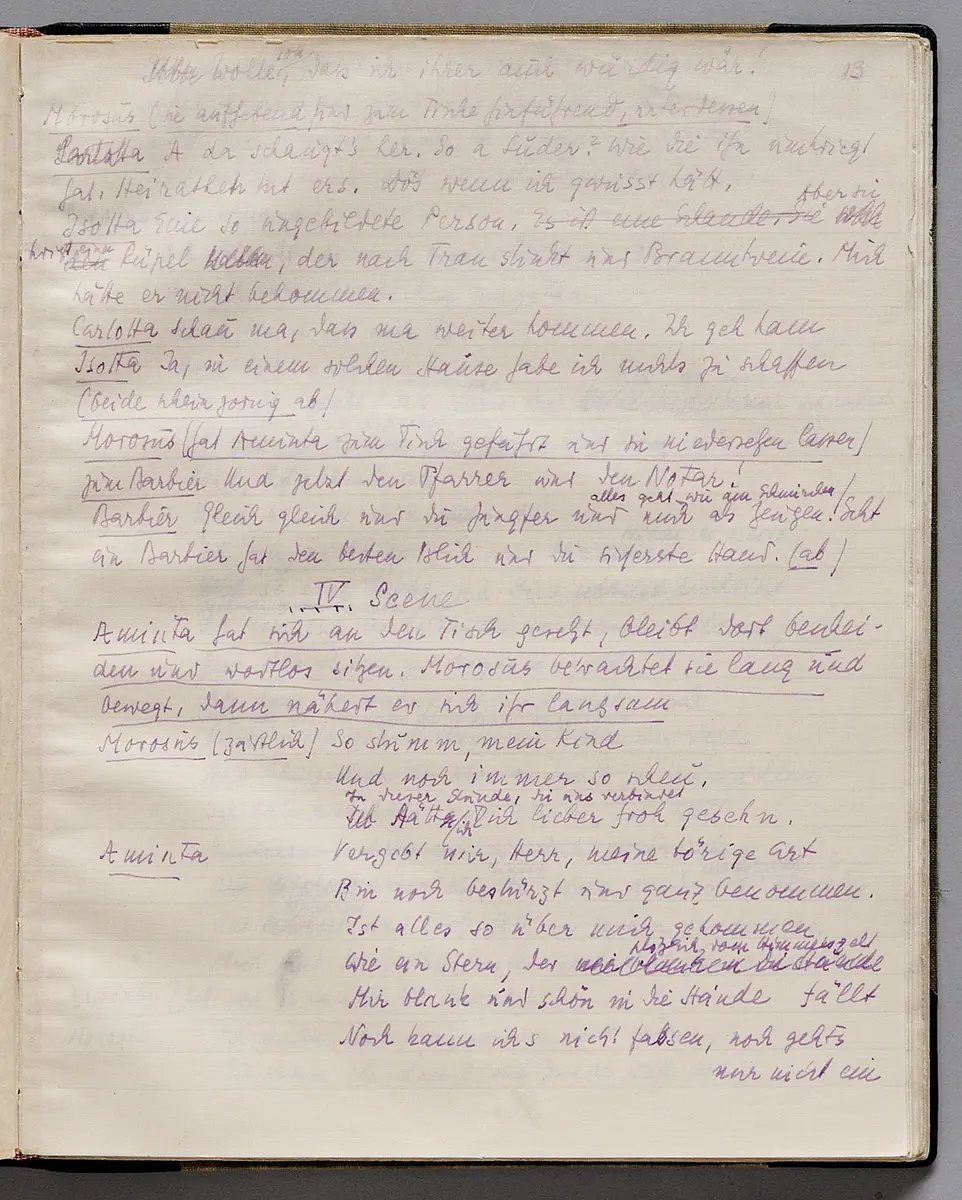 wollte, dass ich ihrer auch würdig wär! 13
Morosus (sie aufhebend und zum Tische hinführend, unterdessen)
Carlotta A da schaugt's her. So a Luder! Wie die ihn umkriegt
hat. Heirathen tut ers. Dös wenn ich gwusst hätt.
Aber sie
Isotta Eine so ungebildete Person. Es ist eine Schande. Sie
kriegt einen
Rüpel, der nach Tran stinkt und Branntwein. Mich
hätte er nicht bekommen.
Carlotta Schau ma, dass ma weiter kommen. Ich geh ham
Isotta Ja, in einem solchen Hause habe ich nichts zu schaffen
(beide zornig ab)
Morosus (hat Aminta zum Tisch geführt und sie niedersetzen lassen)
zum Barbier Und jetzt den Pfarrer und den Notar!
alles geht wie am Schnürchen
Barbier Gleich gleich und die Jungfer und mich als Zeugen!
ein Barbier hat den besten Blick und die sicherste Hand. (ab)
IV Scene
Aminta hat sich an den Tisch gesetzt, bleibt dort beschei-
den und wortlos sitzen. Morosus betrachtet sie lang und
bewegt, dann nähert er sich ihr langsam
Morosus (zärtlich) So stumm, mein Kind
Und noch immer so scheu.
In dieser Stunde, die uns verbindet
Hätte ich Dich lieber froh gesehn.
Aminta Vergebt mir, Herr, meine törige Art
Bin noch bestürzt und ganz benommen.
Ist alles so über mich gekommen
plötzlich vom Himmelszelt
Wie ein Stern, der
Mir blank und schön in die Hände fällt
Noch kann ichs nicht fassen, noch gehts
mir nicht ein